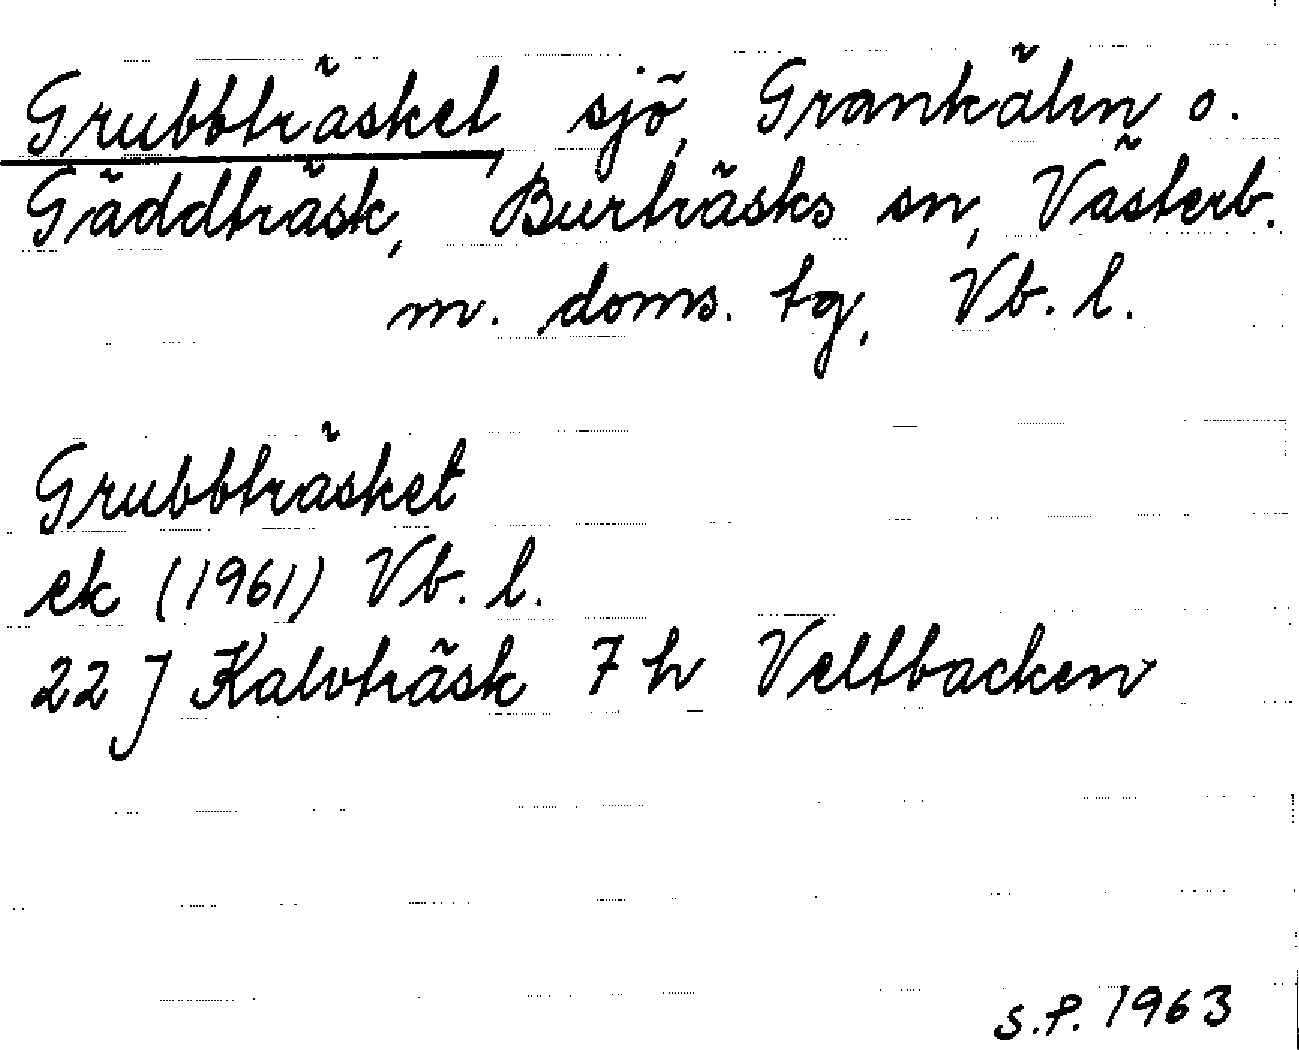 Grubbträsket, sjö, Grankälen o.
Gäddträsk, Burträsks sn, Västerb.
m. doms. tg, Vb. l.
Grubbträsket
ek (1961) Vb. l.
22 J Kalvträsk 7 h Veltbacken
S.P. 1963